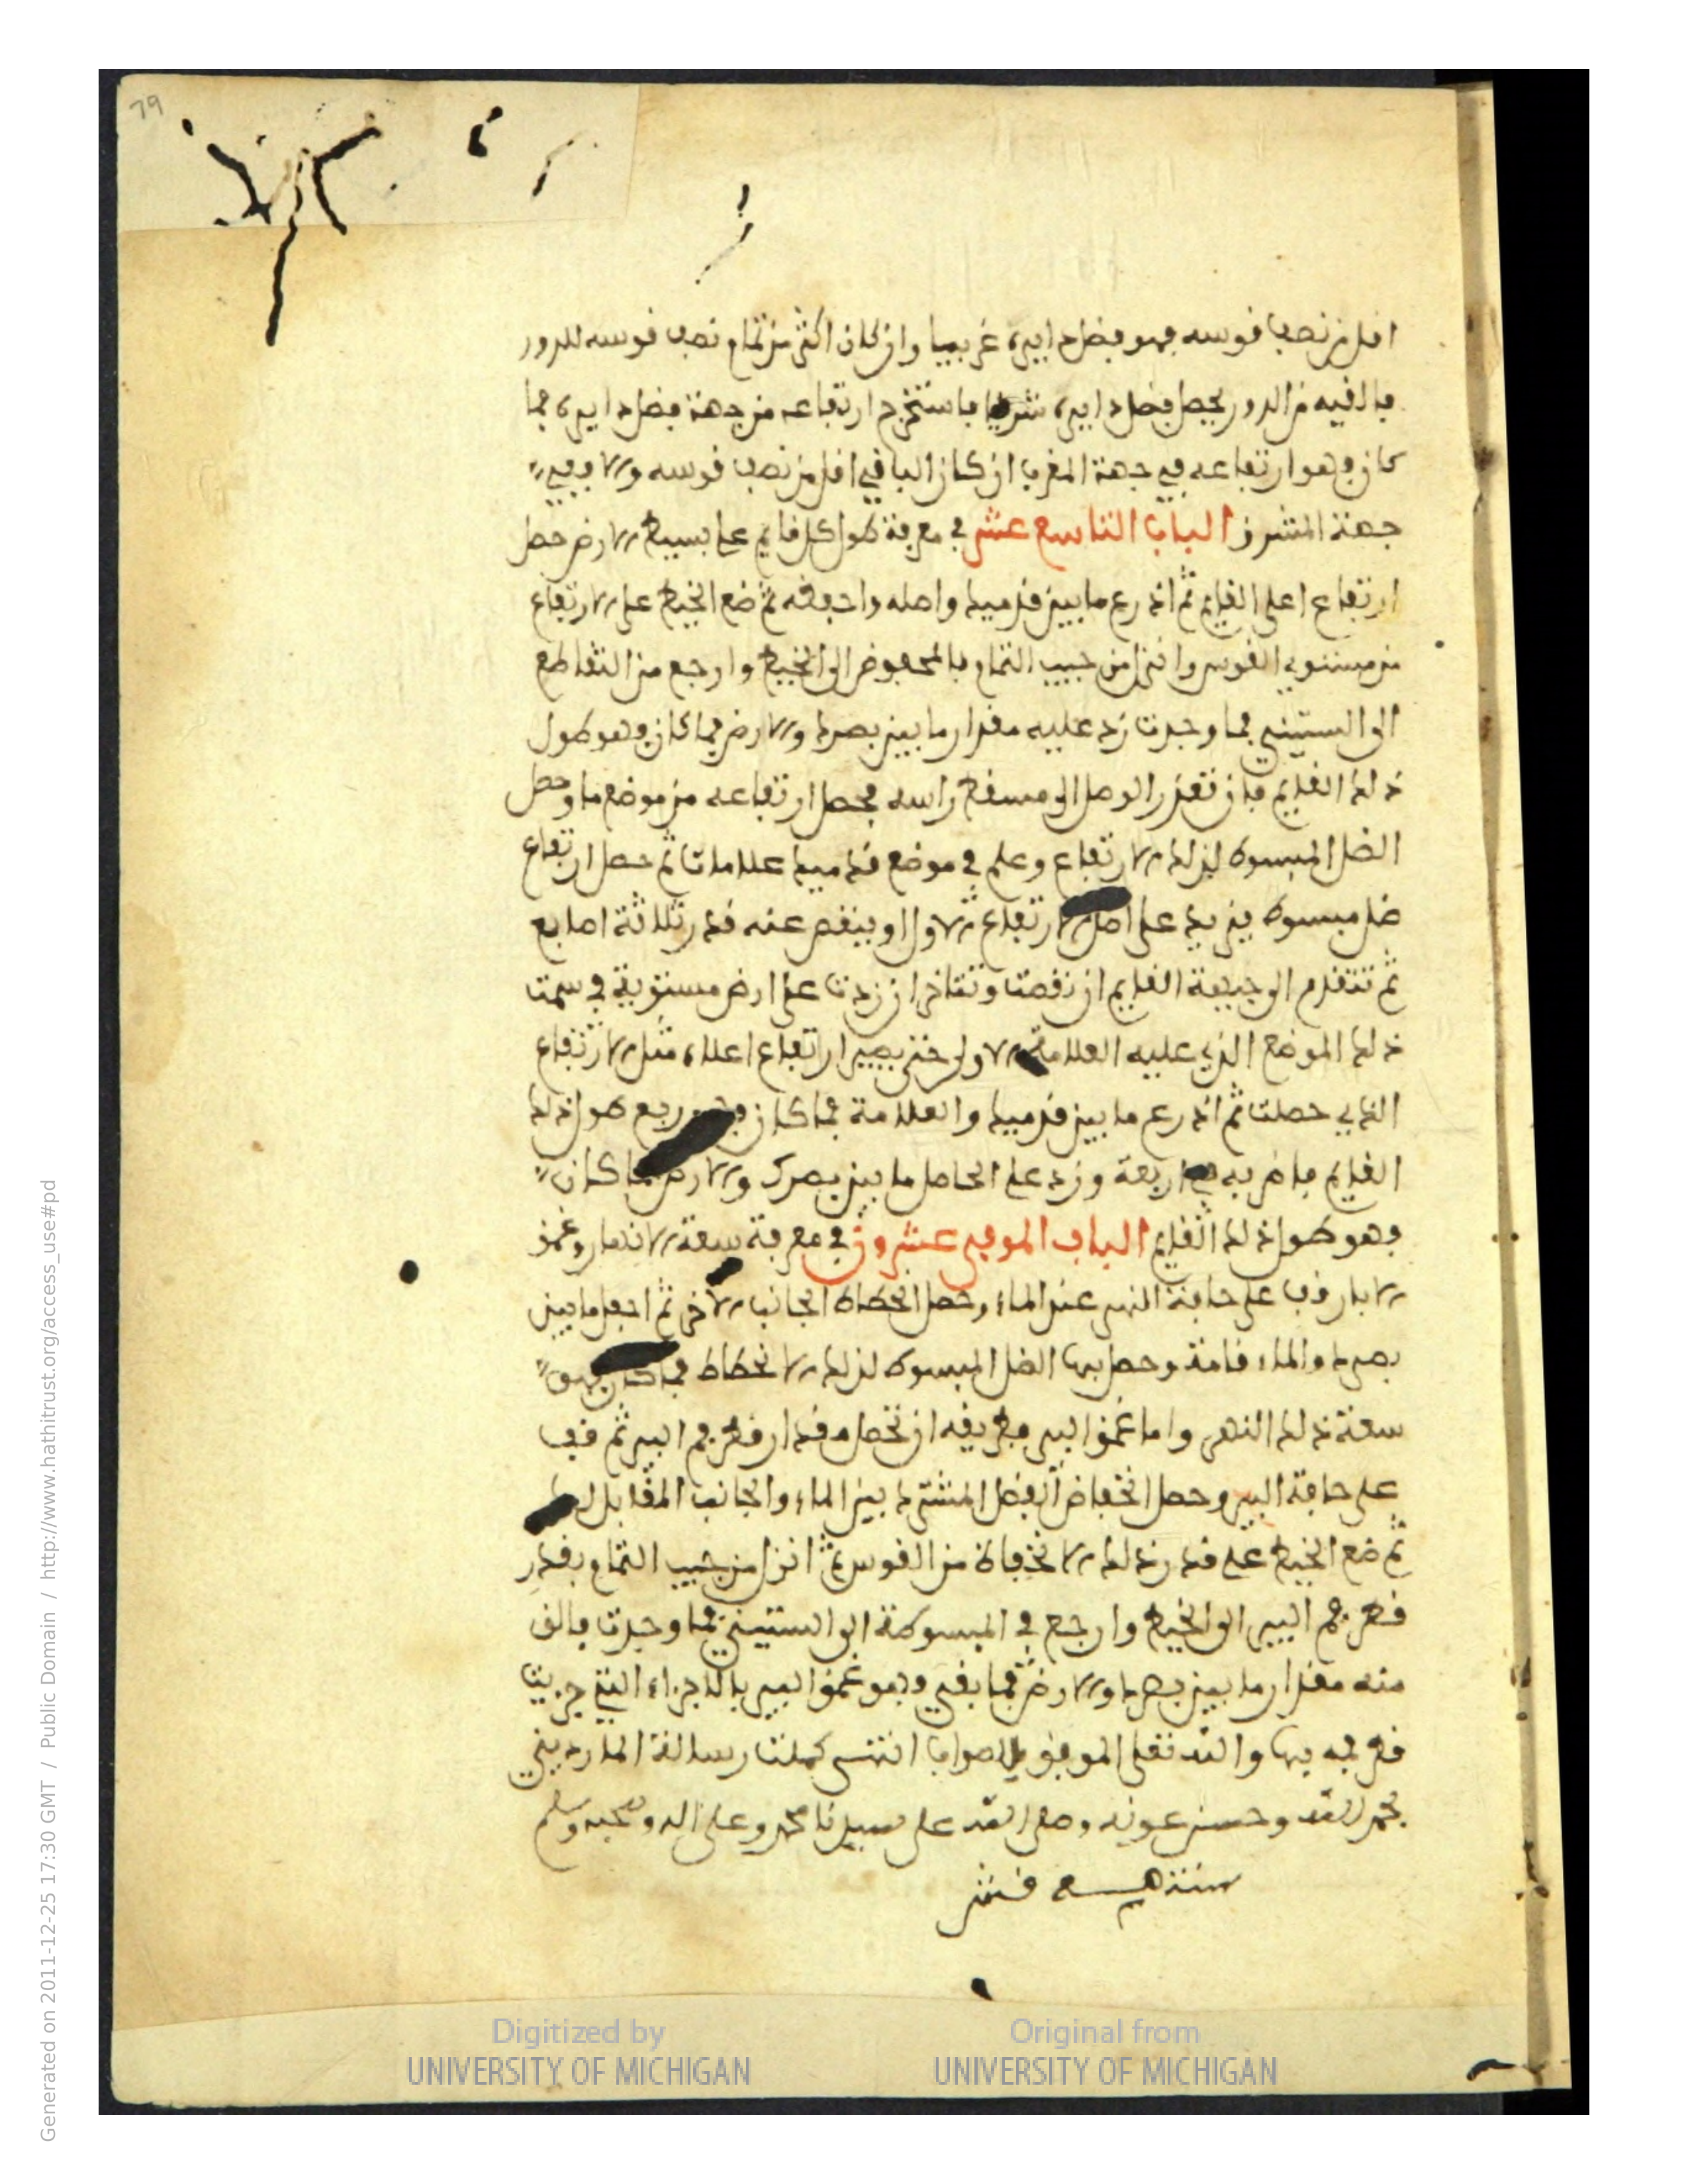 79
اقل من نصف قوسه فهو فضل داير غربيا وان كان اكثر من تمام نصف قوسه للدور
فالقيه من الدور يحصل فضل داير شرقيا فاستخرج ارتفاعه من جهة فضل داير فما
كان فهو ارتفاعه في جهة المغرب ان كان الباقي اقل من نصف قوسه والا ففي
جهة المشرق الباب التاسع عشر في معرفة طول كل قايم على بسيط الارض حصل
ارتفاع اعلى القايم ثم اذرع ما بين قدميك واصله واحفظه ثم ضع الخيط على الارتفاع
من مستوى القوس وانزل من جيب التمام بالمحفوظ الى الخيط وارجع من التقاطع
الى الستيني فما وجدت زد عليه مقدار ما بين بصرك والارض فما كان فهو طول
ذلك القايم فان تعذر الوصل الى مسقط راسه فحصل ارتفاعه من موضع ما وحصل
الظل المبسوط لذلك الارتفاع وعلم في موضع قدميك علامات ثم حصل ارتفاع
ظل مبسوط يزيد على اصل الارتفاع الاول او ينقص عنه قدر ثلاثة اصابع
ثم تتقدم الى جهة القايم ان نقصت وتتاخر ان زدت على ارض مستوية في سمت
ذلك الموضع الذي عليه العلامة الاولى حتى يصير ارتفاع اعلاه مثل الارتفاع
الذي حصلت ثم اذرع ما بين قدميك والعلامة فما كان فهو ربع طول ذلك
القايم فاضربه في اربعة وزد على الحاصل ما بين بصرك والارض فما كان
فهو طول ذلك القايم الباب الموفي عشرون في معرفة سعة الانهار وغمق
الابار قف على حافة النهر عند الماء وحصل انحطاط الجانب الاخر ثم اجعل ما بين
بصرك والماء قامة وحصل بها الظل المبسوط لذلك الانحطاط فما كان فهو
سعة ذلك النهر واما غمق البير فطريقه ان تحصل مقدار قطر فم البير ثم قف
على حافة البير وحصل انخفاض الفصل المشترك بين الماء والجانب المقابل لك
ثم ضع الخيط على قدر ذلك الانخفاض من القوس ثم انزل من جيب التمام بقدر
قطر فم البير الى الخيط وارجع في المبسوطة الى الستيني فما وجدت فالق
منه مقدار ما بين بصرك والارض فما بقي فهو غمق البير بالاجزاء التي جزيت
قطر فمه بها والله تعلى الموفق للصواب انتهى كملت رسالة المارديني
بحمد الله وحسن عونه وصلى الله على سيدنا محمد وعلى اله وصحبه وسلم
Digitized by
UNIVERSITY OF MICHIGAN
Original from
UNIVERSITY OF MICHIGAN
Generated on 2011-12-25 17:30 GMT / Public Domain / http://www.hathitrust.org/access_use#pd